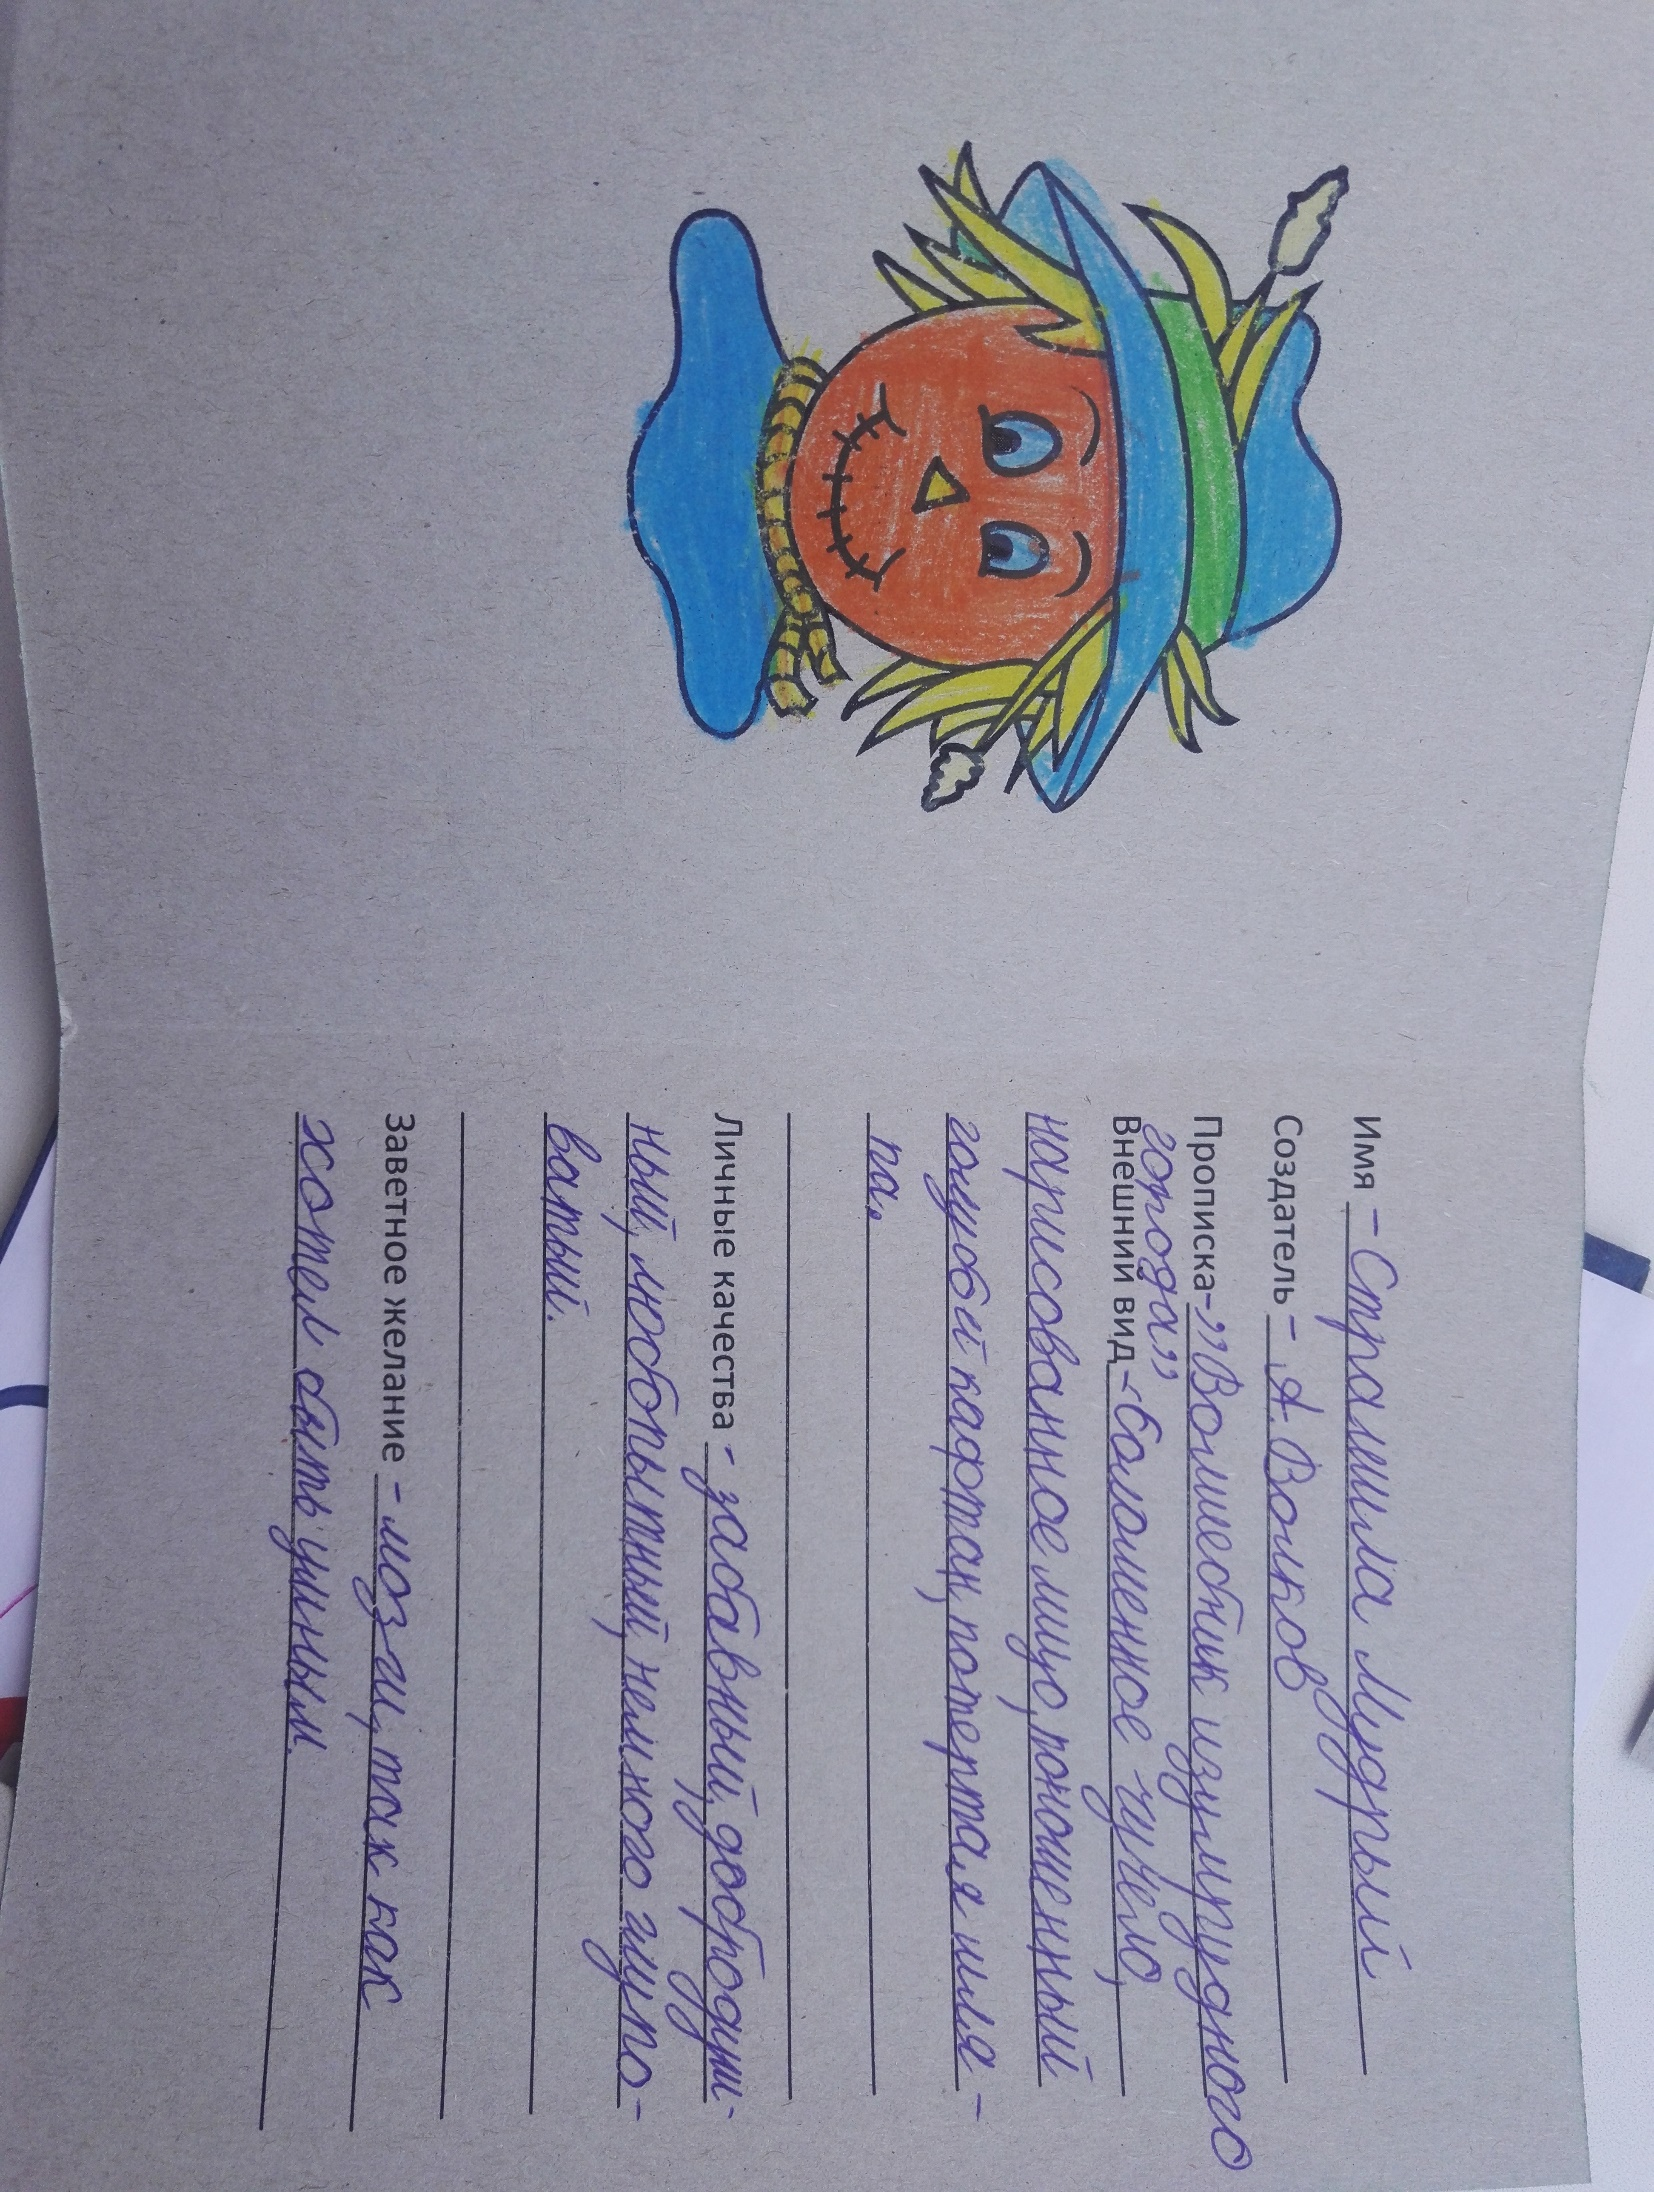 Имя – Страшила Мудрый
Создатель – А. Волков
Прописка – "Волшебник изумрудного
города"
Внешний вид – соломенное чучело,
нарисованное лицо, поношенный
голубой кафтан, потертая шля-
па.
Личные качества – забавный, добродуш-
ный, любопытный, немного глупо-
ватый.
Заветное желание – мозги, так как
хотел быть умным.